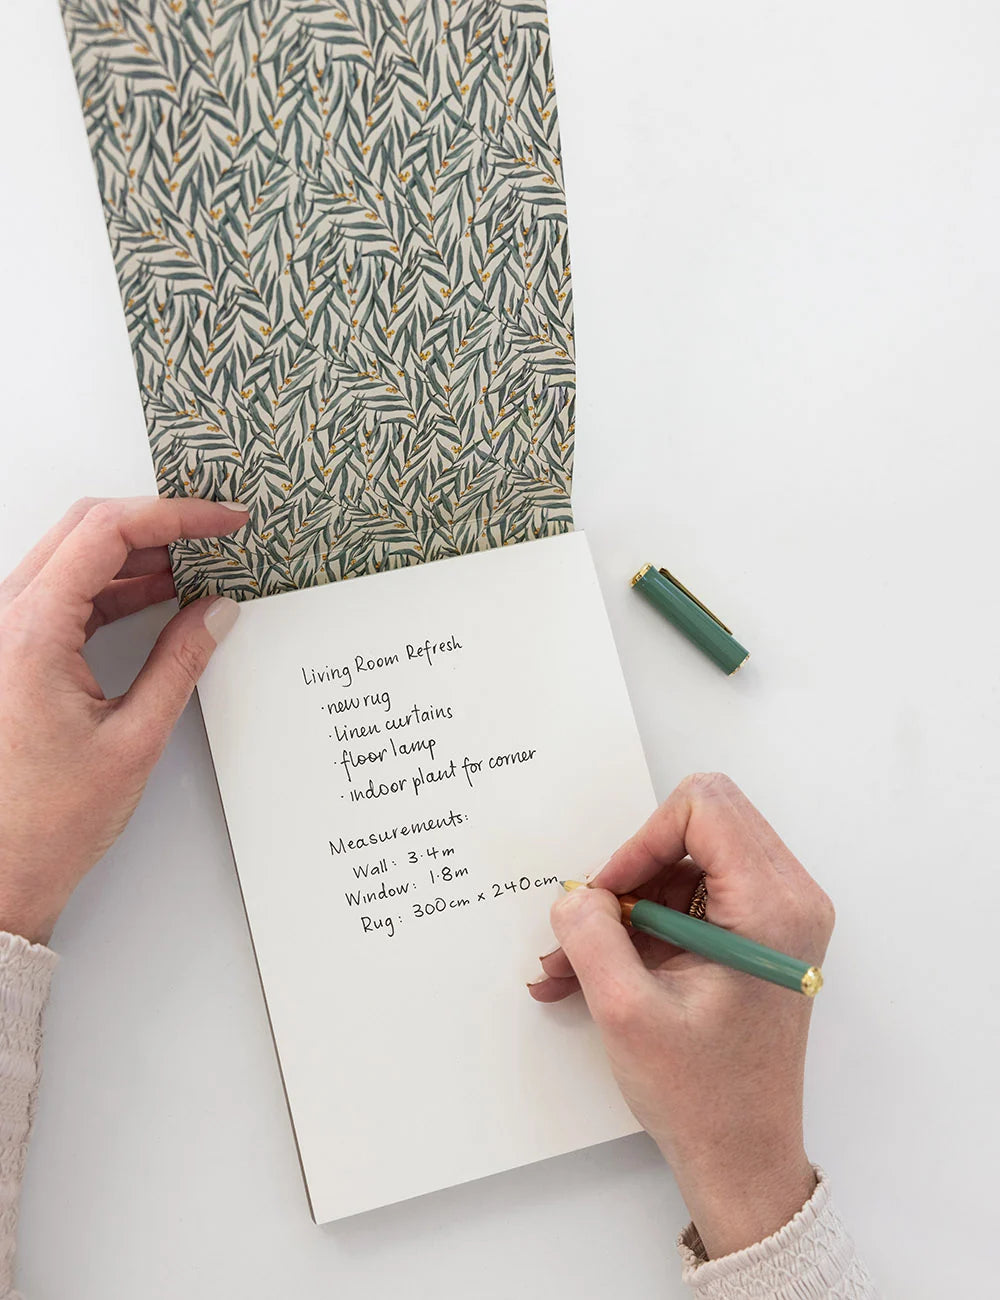 Living Room Refresh
· new rug
· linen curtains
· floor lamp
· indoor plant for corner
Measurements:
Wall: 3.4m
Window: 1.8m
Rug: 300cm x 240cm